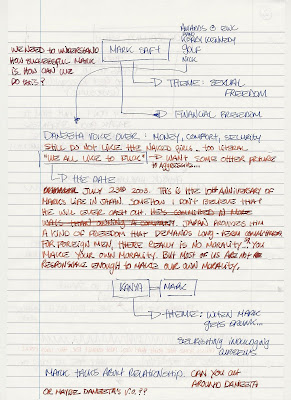 AWARDS @ EWC
KERRY KENNEDY
GOLF
NICK
WE NEED TO UNDERSTAND
HOW SUCCESSFUL MARK
IS. HOW CAN WE
DO THIS?
MARK SAFT
THEME: SEXUAL
FREEDOM
FINANCIAL FREEDOM
DANESTA VOICE OVER: MONEY, COMFORT, SECURITY
STILL DO NOT LIKE THE NAKED GIRLS.. TOO LITERAL
"WE ALL LIKE TO FUCK" WANT SOME OTHER PICTURE
THE DATE
JULY 23RD 2003. THIS IS THE 10TH ANNIVERSARY OF
MARKS LIFE IN JAPAN. SOMEHOW I DON'T BELIEVE THAT
HE WILL EVER CASH OUT. HE'S COMMITTED IN MORE
WAYS THAN OWNING A COMPANY. JAPAN PROVIDES HIM
A KIND OF FREEDOM THAT DEMANDS LONG-TERM COMMITMENT
FOR FOREIGN MEN, THERE REALLY IS NO MORALITY... YOU
MAKE YOUR OWN MORALITY. BUT MOST OF US ARE NOT
RESPONSIBLE ENOUGH TO MAKE OUR OWN MORALITY.
KANYA
MARK
THEME: WHEN MARK
GETS DRUNK...
SELF INDULGING
MARK TALKS ABOUT RELATIONSHIP. CAN YOU CUT
AROUND DANESTA
OR MAYBE DANESTA'S V.O.??